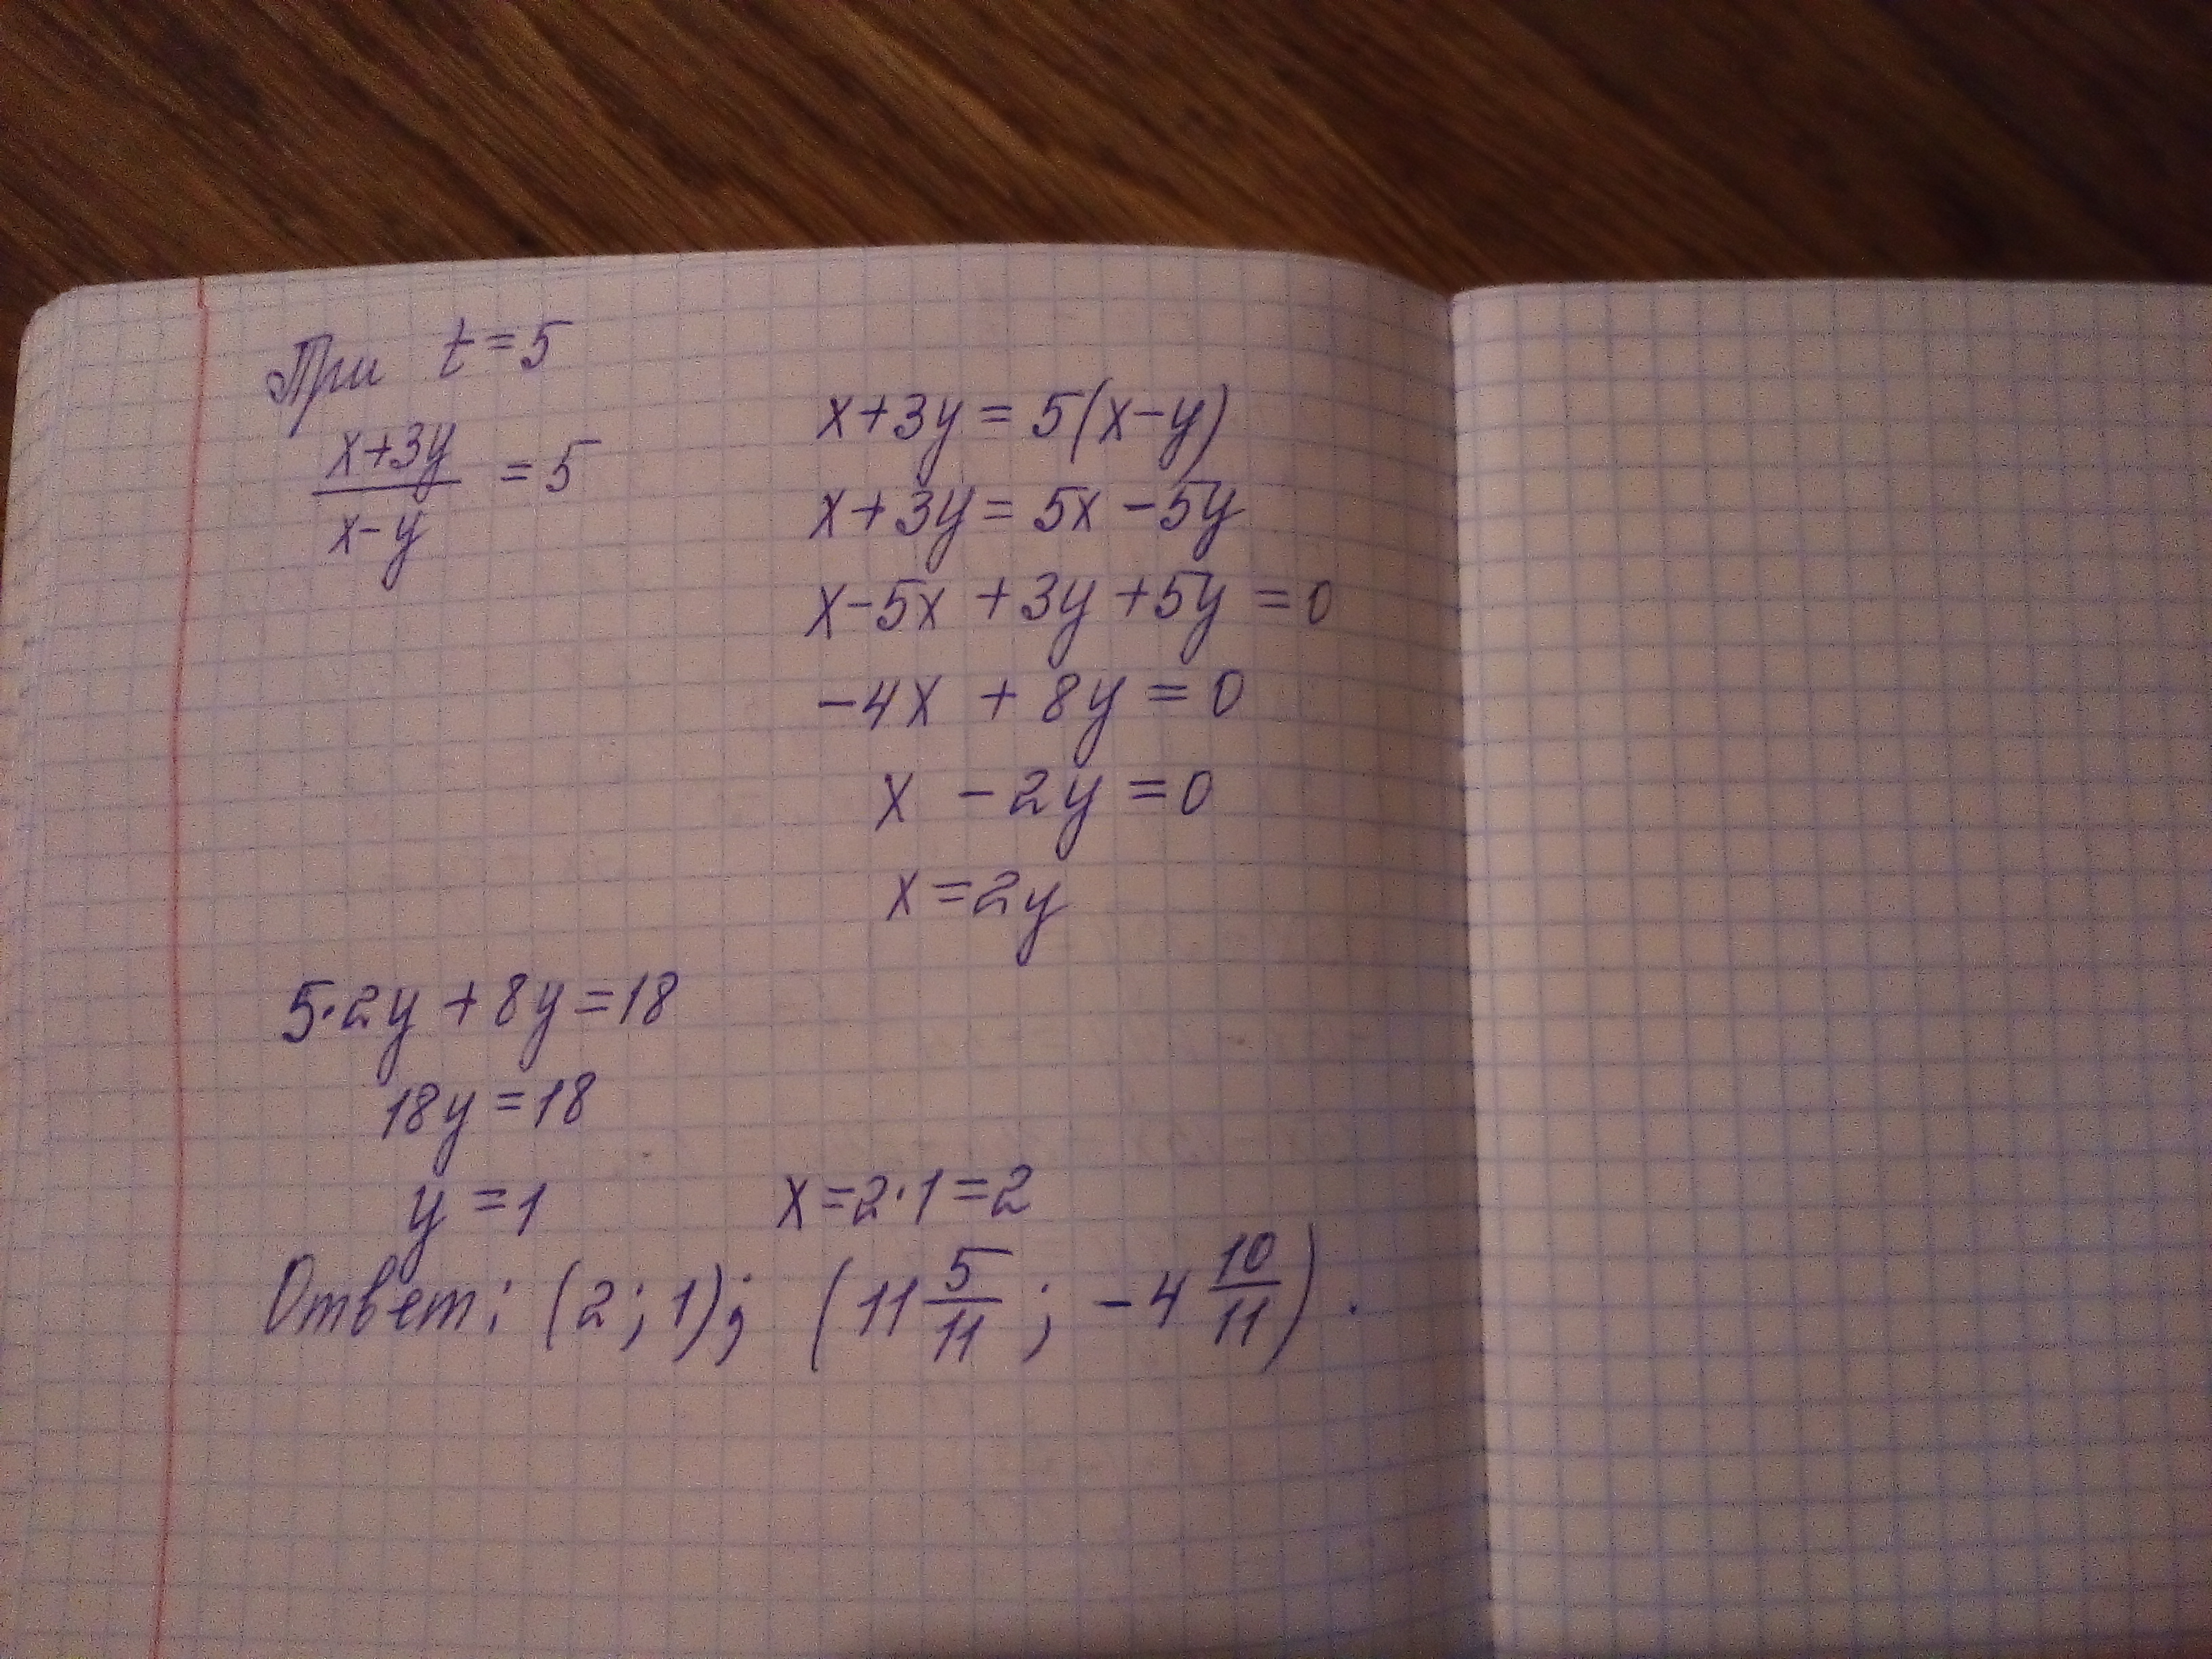 При t = 5
x+3y = 5(x-y)
(x+3y)/(x-y) = 5
x+3y = 5x - 5y
x-5x +3y +5y = 0
-4x + 8y = 0
x - 2y = 0
x = 2y
5·2y + 8y = 18
18y = 18
y = 1 x = 2·1 = 2
Ответ: (2; 1); (11 5/11; -4 10/11).